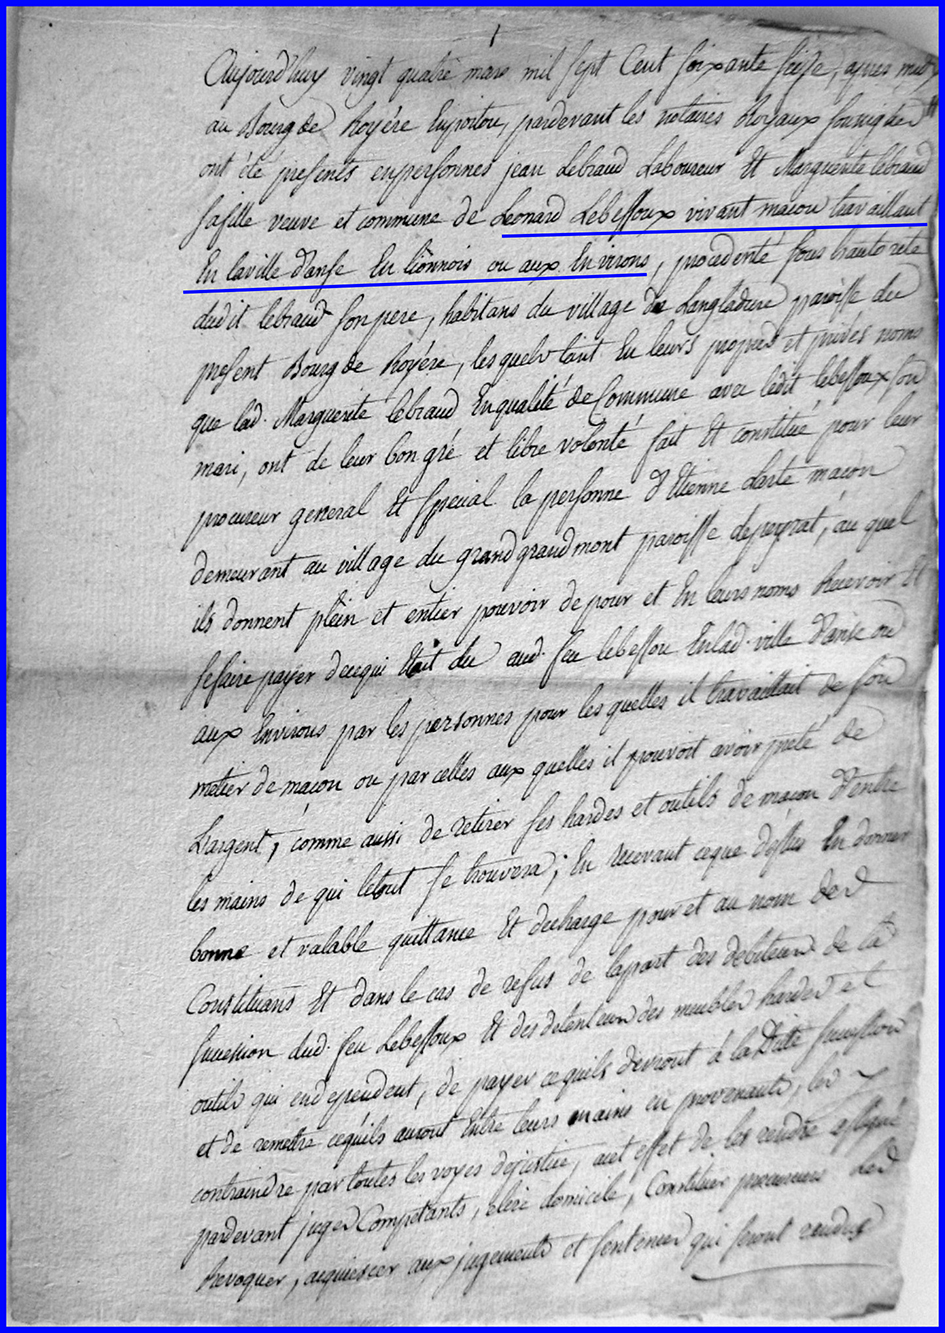 Aujourd'huy vingt quatre mars mil sept Cent soixante seise, apres midy
au Bourg de Royére Enpoitou, pardevant les notaires Royaux soussignés
ont été presents en personnes jean Lebraud Laboureur Et Marguerite lebraud
sa fille veuve et commune de Léonard Lebessoux vivant macon travaillant
En laville d'anse En liônnois ou aux Environs, procedente sous l'autorité
dudit lebraud son pere, habitans du village de Langladure paroisse du
present Bourg de Royére, lesquels tant En leurs propres et privés noms
que lad. Marguerite lebraud En qualité de Commune avec ledit lebessoux son
mari, ont de leur bon gré et libre volonté fait Et constitué pour leur
procureur general Et special la personne d'Etienne Larte macon
demeurant au village du grand grandmont paroisse depeyrat, au quel
ils donnent plein et entier pouvoir de pour et En leurs noms Recevoir Et
se faire payer de cequi Etait du aud. feu lebessou En lad. ville d'anse ou
aux Environs par les personnes pour les quelles il travaillait de son
métier de maçon ou par celles aux quelles il pouvoit avoir preté de
L'argent, comme aussi de retirer ses hardes et outils de macon D'entre
les mains de qui letout se trouvera; En recevant ceque dessus En donner
bonne et valable quittance Et decharge pour et au nom des
Constituans Et dans le cas de refus de lapart des debiteurs de la
succession dud. feu Lebessoux Et des detenteurs des meubles hardes et
outils qui en dependent, de payer cequils devront à la Dite succession
et de remettre cequils auront Entre leurs mains en provenants, les
contraindre par toutes les voyes dejustice, aud effet de les rendre
pardevant juges Competants, elire domicile, Constituer procureurs les
Revoquer, acquiescer aux jugements et sentences qui seront rendus